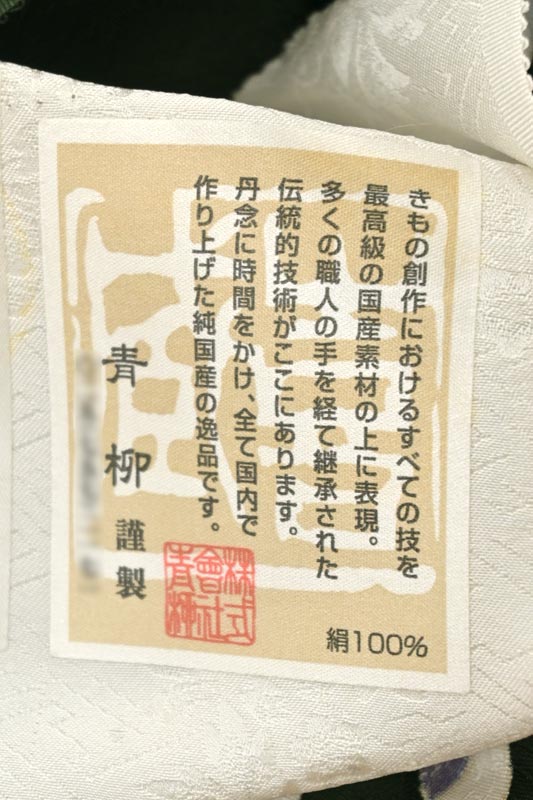 きもの創作におけるすべての技を
最高級の国産素材の上に表現。
多くの職人の手を経て継承された
伝統的技術がここにあります。
丹念に時間をかけ、全て国内で
作り上げた純国産の逸品です。
青柳 謹製
株式
會社
青柳
絹100%